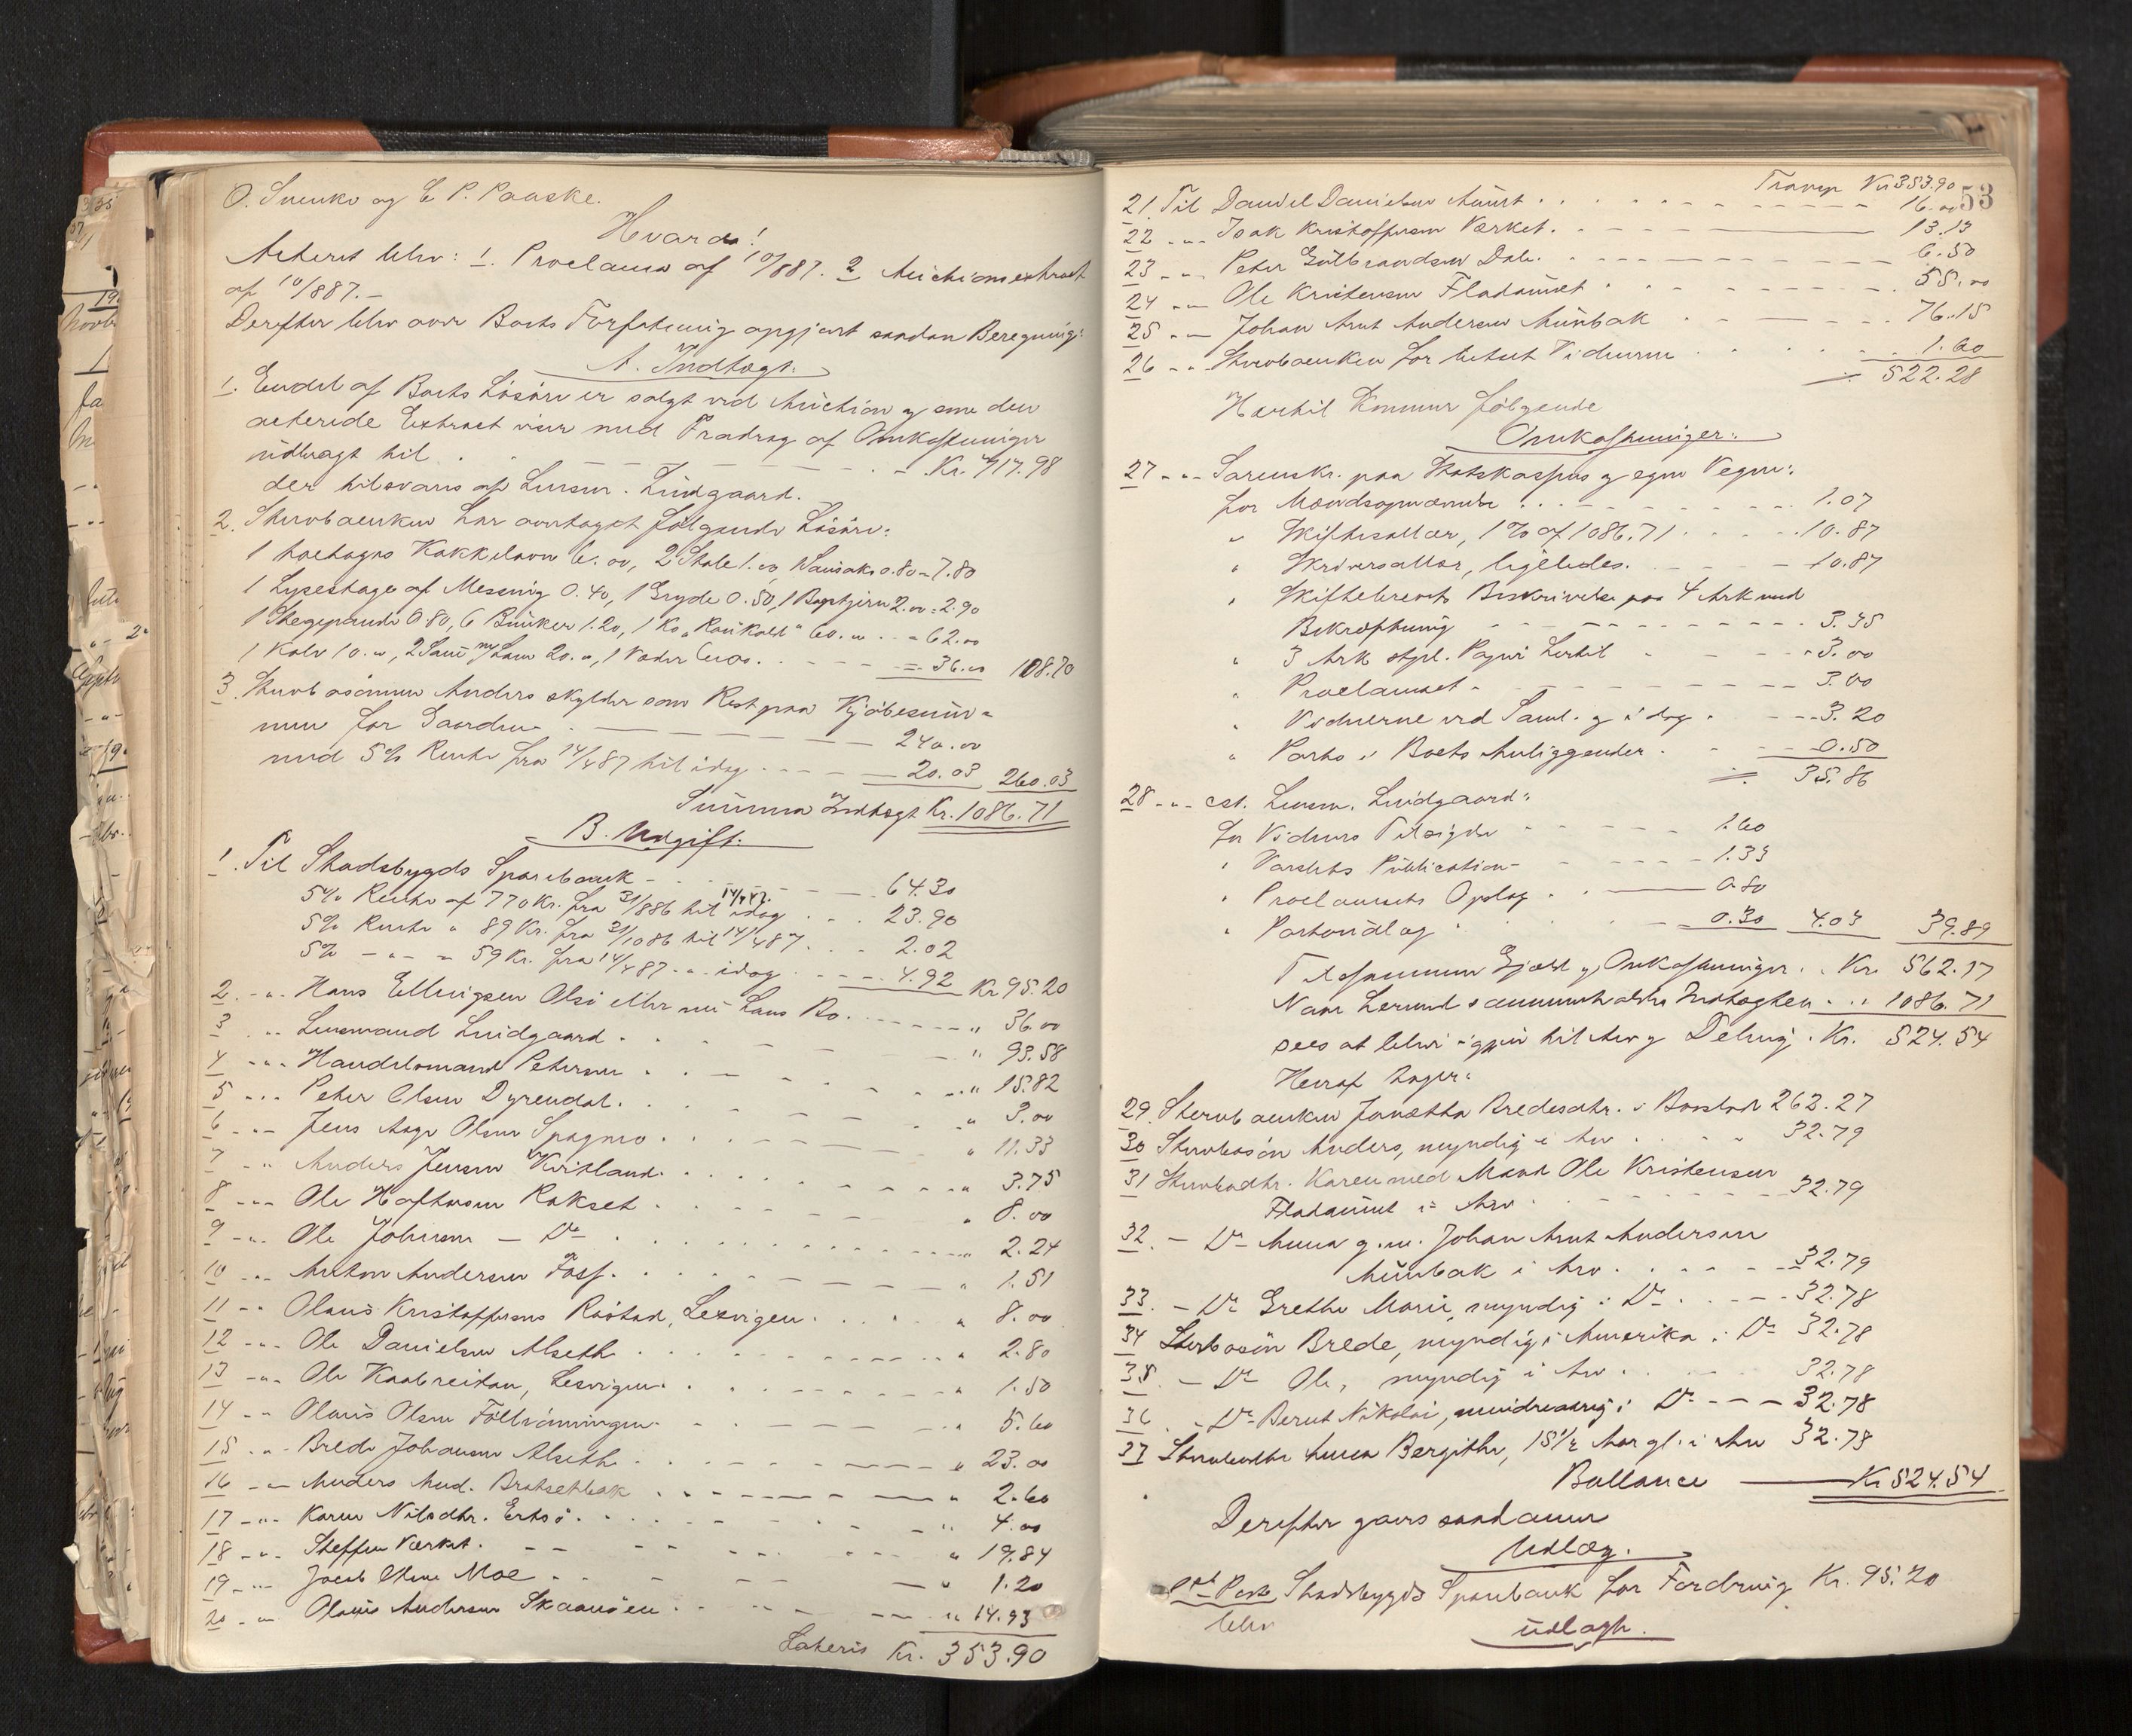 O. Svenkv og E P. Paaske.
Hvorda!
Acteret blev: 1. Proclama af 10/887. 2 Auctionsextract
af 10/887.
Derefter blev over Boets Forfatning opgjort saadan Beregning:
A. Indtægt.
1. Endel af Boets Løsøre er solgt ved Auction og som den
acterede Extract viser med Fradrag af Omkostninger
udbragt til Kr. 717.98
der tilsvares af Lensm. Lindgaard.
2. Stervboenken har overtaget følgende Løsøre:
1 toetages Kakkelovn 6.00, 2 Stole 1.00, 1 Sausak 0.80 = 7.80
1 Lysestage af Messing 0.40, 1 Gryde 0.50, 1 Bagstjern 2.00 = 2.90
1 Stegepande 0.80, 6 Bunker 1.20, 1 Ko "Raukold" 60.00 = 62.00
1 Kalv 10.00, 2 Sau m/Lam 20.00, 1 Væder 6.00. = 36.00 108.70
3. Sterbosønnen Anders skylder som Rest paa Kjøbesum-
men for Gaarden 240.00
med 5% Rente fra 14/487 til idag 20.03 260.03
Summa Indtægt Kr. 1086.71
B. Udgift.
1. Til Stadsbygds Sparebank 64.30
5% Rente af 770 Kr. fra 31/886 til 14/487 idag 23.90
5% Rente " 89 Kr. fra 31/1086 til 14/487 2.02
5% - " - " 59 Kr. fra 14/487 - " - idag 4.92 Kr 95.20
2. - " - Hans Ellingsen Olsø eller nu hans Bo. " 36.00
3 - " - Lensmand Lindgaard " 93.58
4 - " - Handelsmand Petersen " 15.82
5 - " - Peter Olsen Dyrendal. " 3.00
6 - " - Jens Aage Olsen Spagmo. " 11.33
7 - " - Anders Jensen Kvitland. " 3.75
8 - " - Ole Haftorsen Rokset " 8.00
9 - " - Ole Johnsen - Do " 2.24
10 - " - Anton Andersen Foss. " 1.51
11 - " - Olaus Kristoffersens Røstad, Lexvigen. " 8.00
12 - " - Ole Danielsen Alseth " 2.80
13 - " - Ole Kaabreitan, Lexvigen. " 1.50
14 - " - Olaus Olsen Føllvønningen. " 5.60
15 - " - Brede Johansen Alseth " 23.00
16 - " - Anders And. Brotsetbak " 2.60
17 - " - Karen Nilsdtr. Ertsø. " 4.00
18 - " - Steffen Værket. " 19.84
19 - " - Jacob Olsen Moe " 1.20
20 - " - Olaus Andersen Skaanøen " 14.93
Lateris Kr. 353.90
Transp Kr 353.90
53
21. Til Daniel Danielsen Aunet 16.00
22 - " - Isak Kristoffersen Værket. 13.13
23 - " - Peter Gulbrandsen Dale. 6.50
24 - " - Ole Kristensen Fladaunet 55.00
25 - " - Johan Arnt Andersen Aunbak 76.15
26 - " - Sterboenken for betalt Vidnerne 1.60
= 522.28
Hertil kommer følgende
Omkostninger:
27 - " - Sorenskr. paa Statskassens og egne Vegne:
for Mandsopnævnelse 1.07
" Skifteafgift, 1% af 1086.71 10.87
" Skriversallær, ligeledes. 10.87
" Skiftebrevets Beskrivelse paa 4 Ark med
Bekræftning 3.35
" 3 Ark stpl. Papir hertil 3.00
" Proclamaet 3.00
" Vidnerne ved Saml. og idag 3.20
" Porto i Boets Anliggender 0.50
= 35.86
28 - " - cst. Lensm. Lindgaard:
for Vidners Tilsigelse 1.60
" Varslets Publication 1.33
" Proclamaets Opslag 0.80
" Portoudlæg 0.30 4.03 39.89
Tilsammen Gjæld og Omkostninger Kr. 562.17
Naar herved sammenholdes Indtægten " 1086.71
sees at blive igjen til Arv og Deling. Kr. 524.54
Heraf tager:
29. Sterboenken Janetha Bredesdtr. i Boeslod 262.27
30 Sterbosøn Anders, myndig i Arv 32.79
31 Sterbodtr. Karen med Mand Ole Kristensen
Fladaunet i Arv 32.79
32. - Do Anna g.m. Johan Arnt Andersen
Aunbak i Arv 32.79
33. - Do Grethe Marie, myndig i Do 32.78
34 Sterbosøn Brede, myndig i Amerika i Do 32.78
35. - Do Ole, myndig i Arv 32.78
36. - Do Bernt Nikolai, mindreaarig i Do 32.78
37 Sterbodtr. Anna Bergithe, 15 1/2 Aar gl. i Arv 32.78
Ballance Kr 524.54
Derefter gjøres saadanne
Udlæg.
1ste Post Stadsbygds Sparebank for Fordring Kr. 95.20
blev
udlagt.